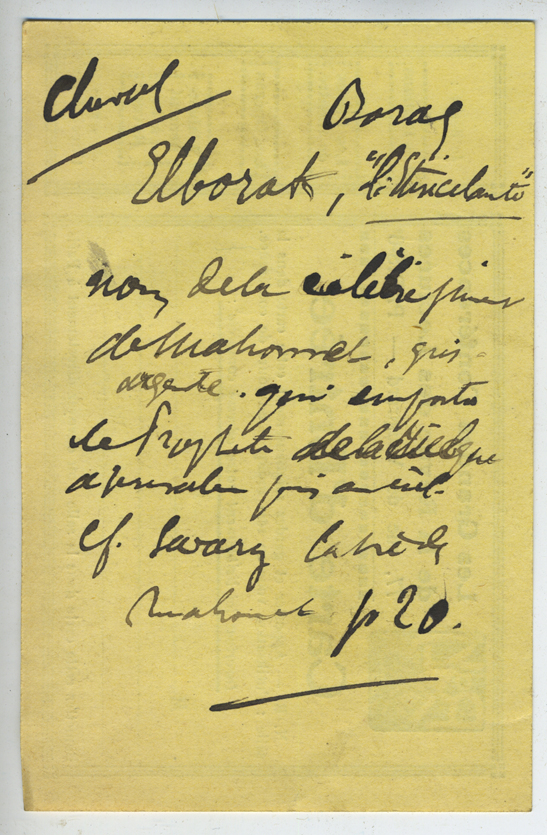 Cheval
Boraq
Elborak, "L'Etincelante"
nom de la célèbre jument
de Mahomet, gris-
argenté. qui emporta
le Prophète de la
à Jerusalem puis au ciel.
Cf. Savary La vie de
Mahomet p 20.